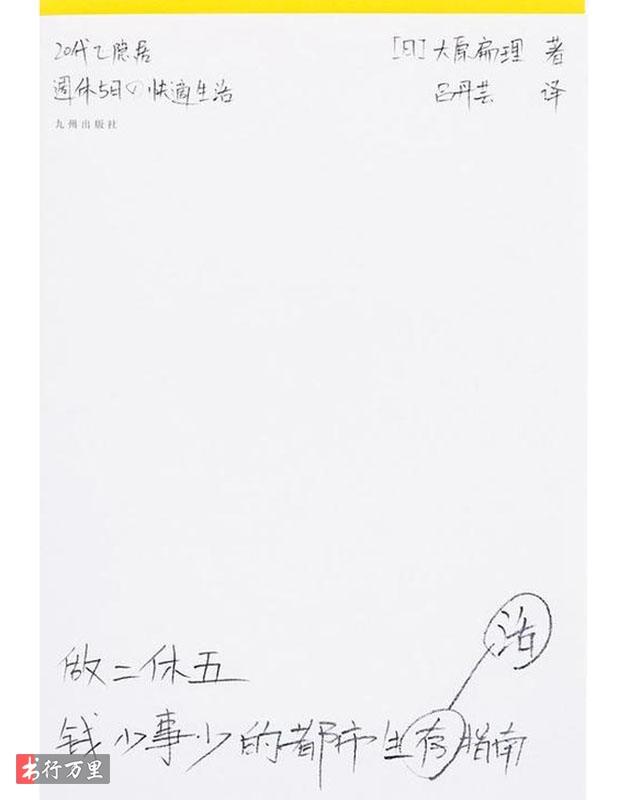 20代で隠居
週休5日の快適生活
九州出版社
[日]大原扁理 著
吕丹芸 译
活
做二休五
钱少事少的都市生存指南
书行万里